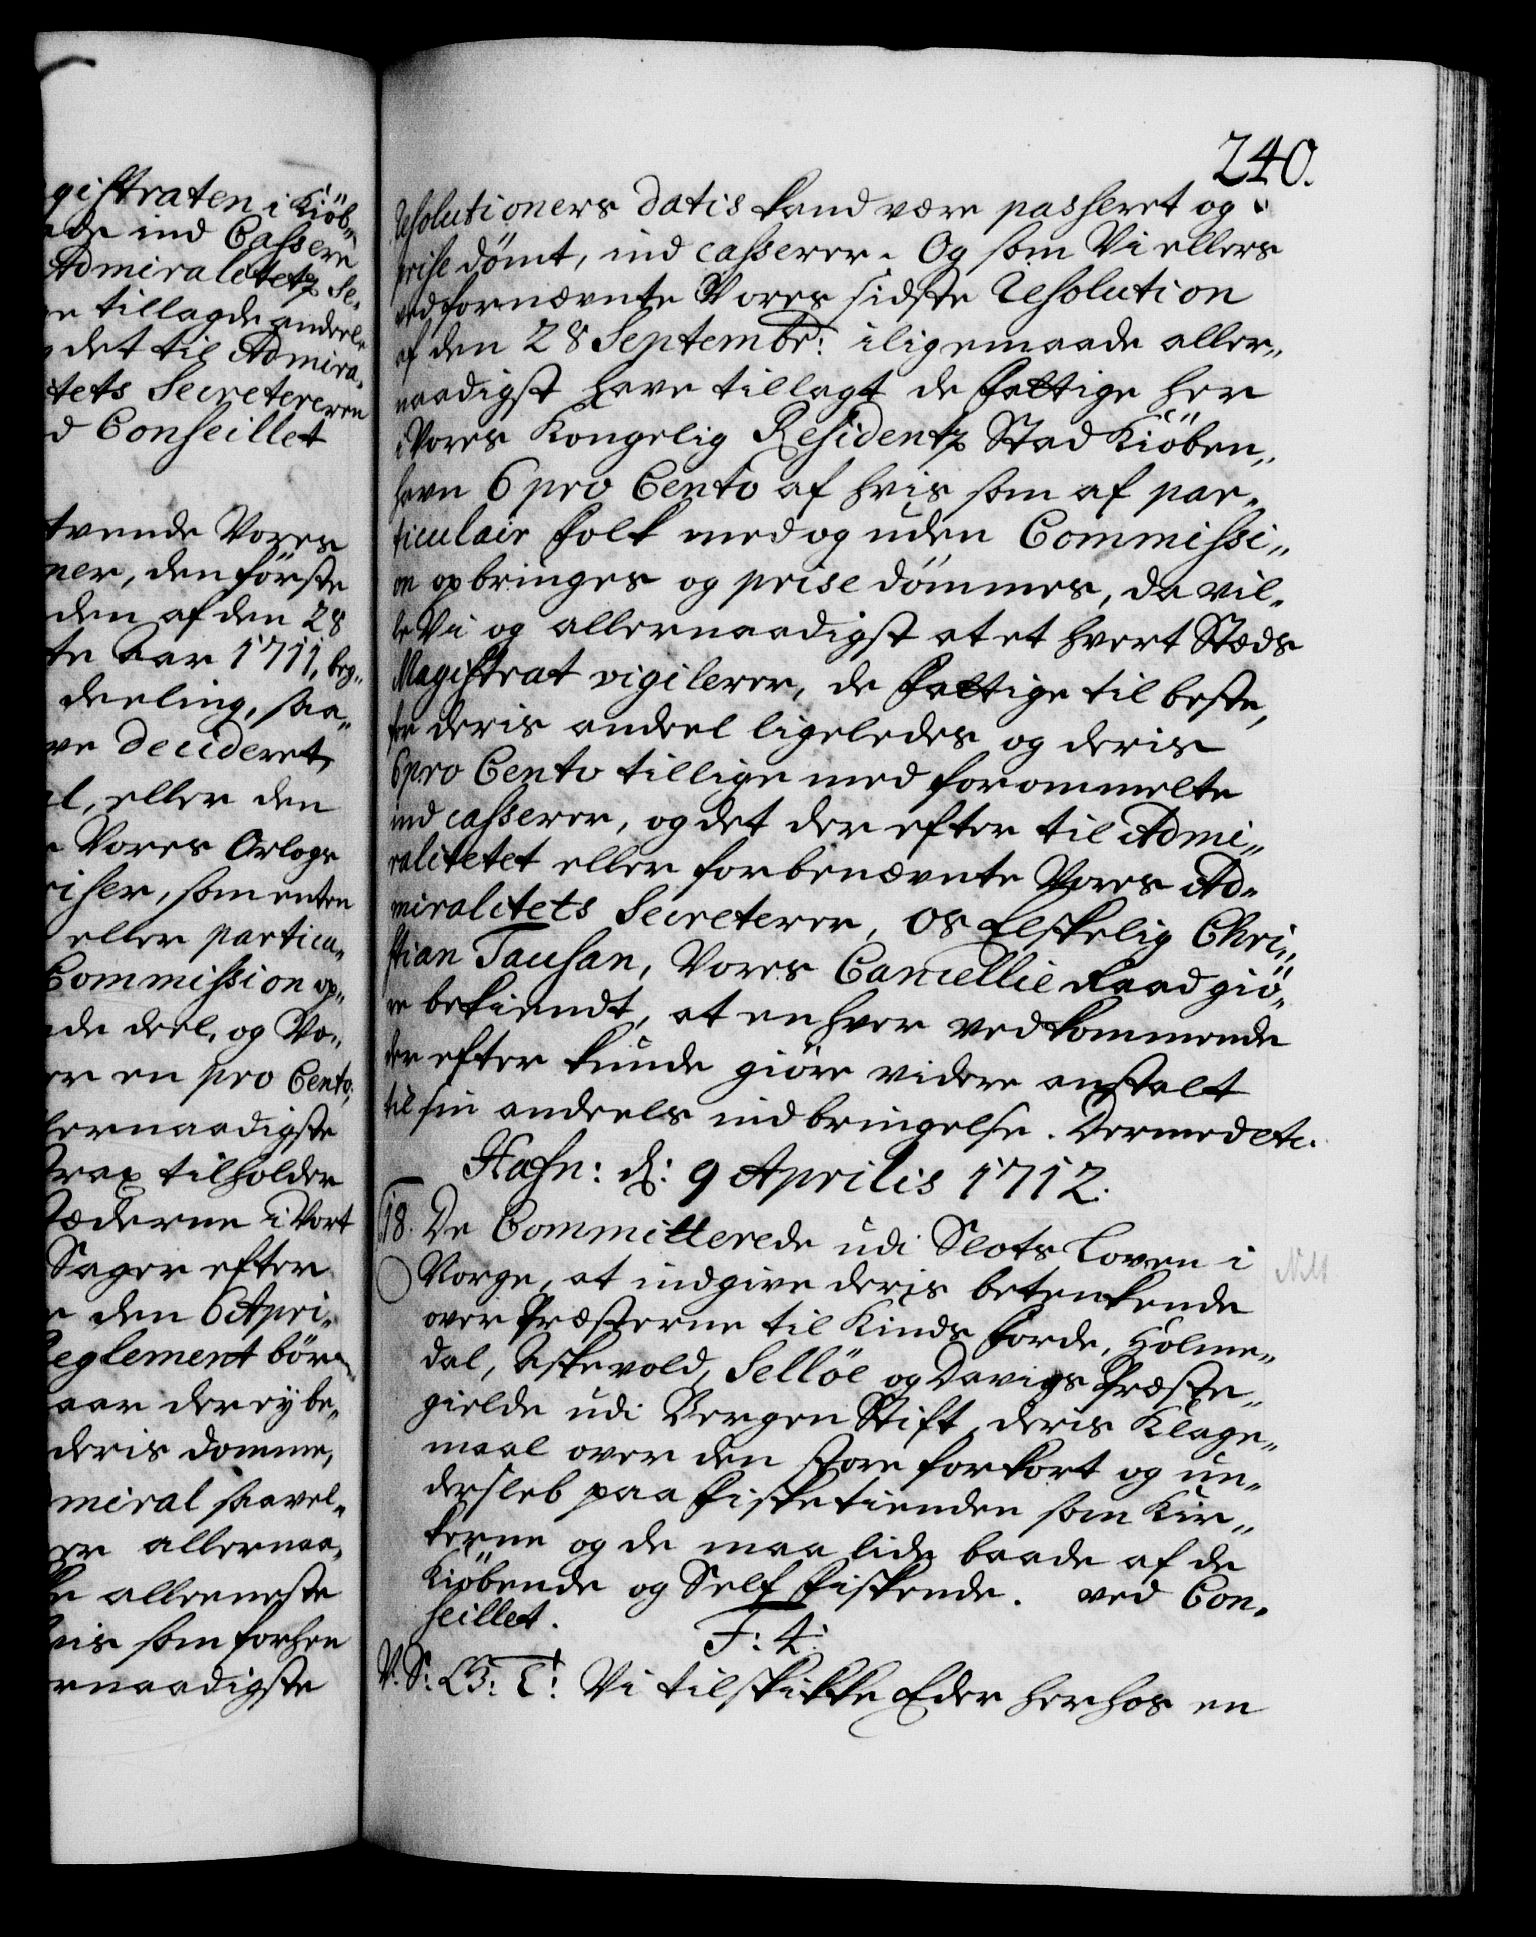 240.
gistraten i Kiöb„
ind Cassere
Admiralitetz Se„
tillagde andeel„
det til Admira„
tets Secretereren
d Conseillet
tvende Vores
ner, den første
den af den 28
te Aar 1711, beg„
deeling, saa„
ve decideret,
eller den
Vores Orlogs
riser, som enten
eller particu„
Commission op„
de deel, og Vo„
er en pro Cento,
lernaadigste
strax tilholder
Stæderne i Vort
Sager efter
den 6 Apri„
Reglement bör
aar der ey be„
deris domme,
miral saavel„
er allernaa„
allerneste
vis som forhen
rnaadigste
Resolutioners datis kand være passeret og
prise dömt, ind casserer. Og som Vi ellers
ved fornævnte Vores sidste Resolution
af den 28 Septembr: iligemaade aller„
naadigst have tillagt de fattige her
i Vores Kongelig Residentz Stad Kiöben„
havn 6 pro Cento af hvis som af par„
ticulair folk med og uden Commissi„
on opbringes og prise dömmes, da vil„
le Vi og allernaadigst at et hvert Stæds
Magistrat vigilerer, de fattige til beste,
for deris andeel ligeledes og deris
6 pro Cento tillige med forommelte
ind casserer, og det der efter til Admi„
ralitetet eller forbenævnte Vores Ad„
miralitets Secreterer, Os Elskelig Chri„
stian Tausan, Vores Cancellie Raad giö„
re bekiendt, at enhver vedkommende
der efter kunde giöre videre anstalt
til sin andeels indbringelse. Dermed etc.
Hafn: d: 9 Aprilis 1712.
18. De Committerede udi Slots Loven i
Norge, at indgive deris betenkende
over Præsterne til Kinds, Forde, Holme„
dal, Askevold, Sellöe og Davigs Præste„
gielde udi Bergen Stift, deris Klage„
maal over den store forkort og un„
dersleb paa fisketienden som Kir„
kerne og de maa lide baade af de
Kiöbende og Self fiskende. ved Con„
seillet.
F: 4:
V. S: G: T: Vi tilskikke Eder herhos en